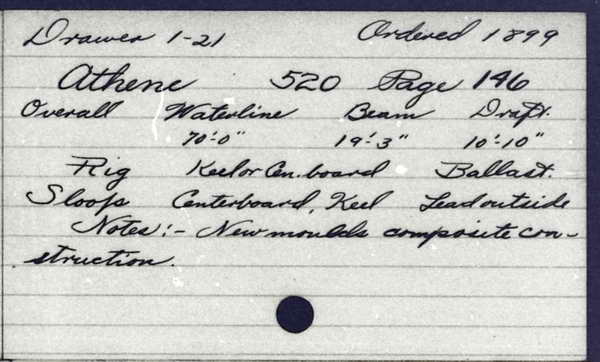 Drawer 1-21 Ordered 1899
Athene 520 Page 146
Overall Waterline Beam Draft.
70'-0" 19'-3" 10'-10"
Rig Keel or Cen. board Ballast.
Sloop Centerboard, Keel Lead outside
Notes:- New moulds composite con-
struction.